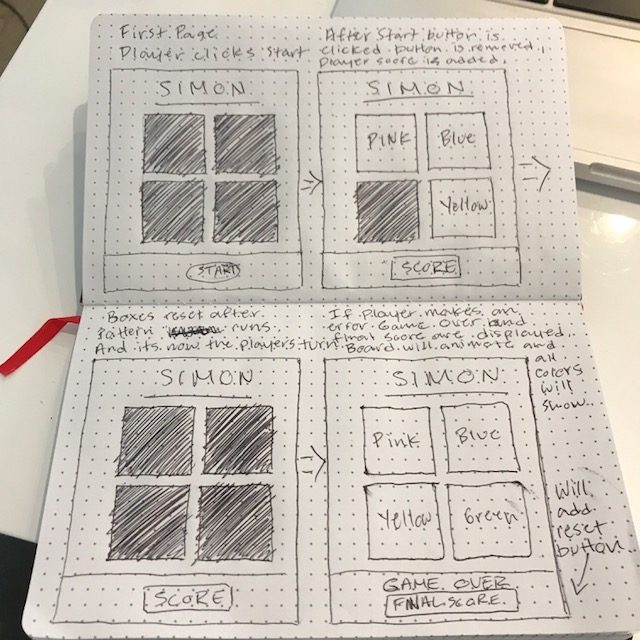 First Page
Player clicks start
SIMON
START
After start button is
clicked button is removed,
player score is added.
SIMON
PINK
Blue
Yellow
SCORE
Boxes reset after
Pattern runs.
And its now the players turn.
SIMON
SCORE
If player makes an
error Game Over and
final score are displayed.
Board will animate and
all
colors
will
show.
SIMON
Pink
Blue
Yellow
Green
GAME OVER
FINAL SCORE
Will
add
reset
button